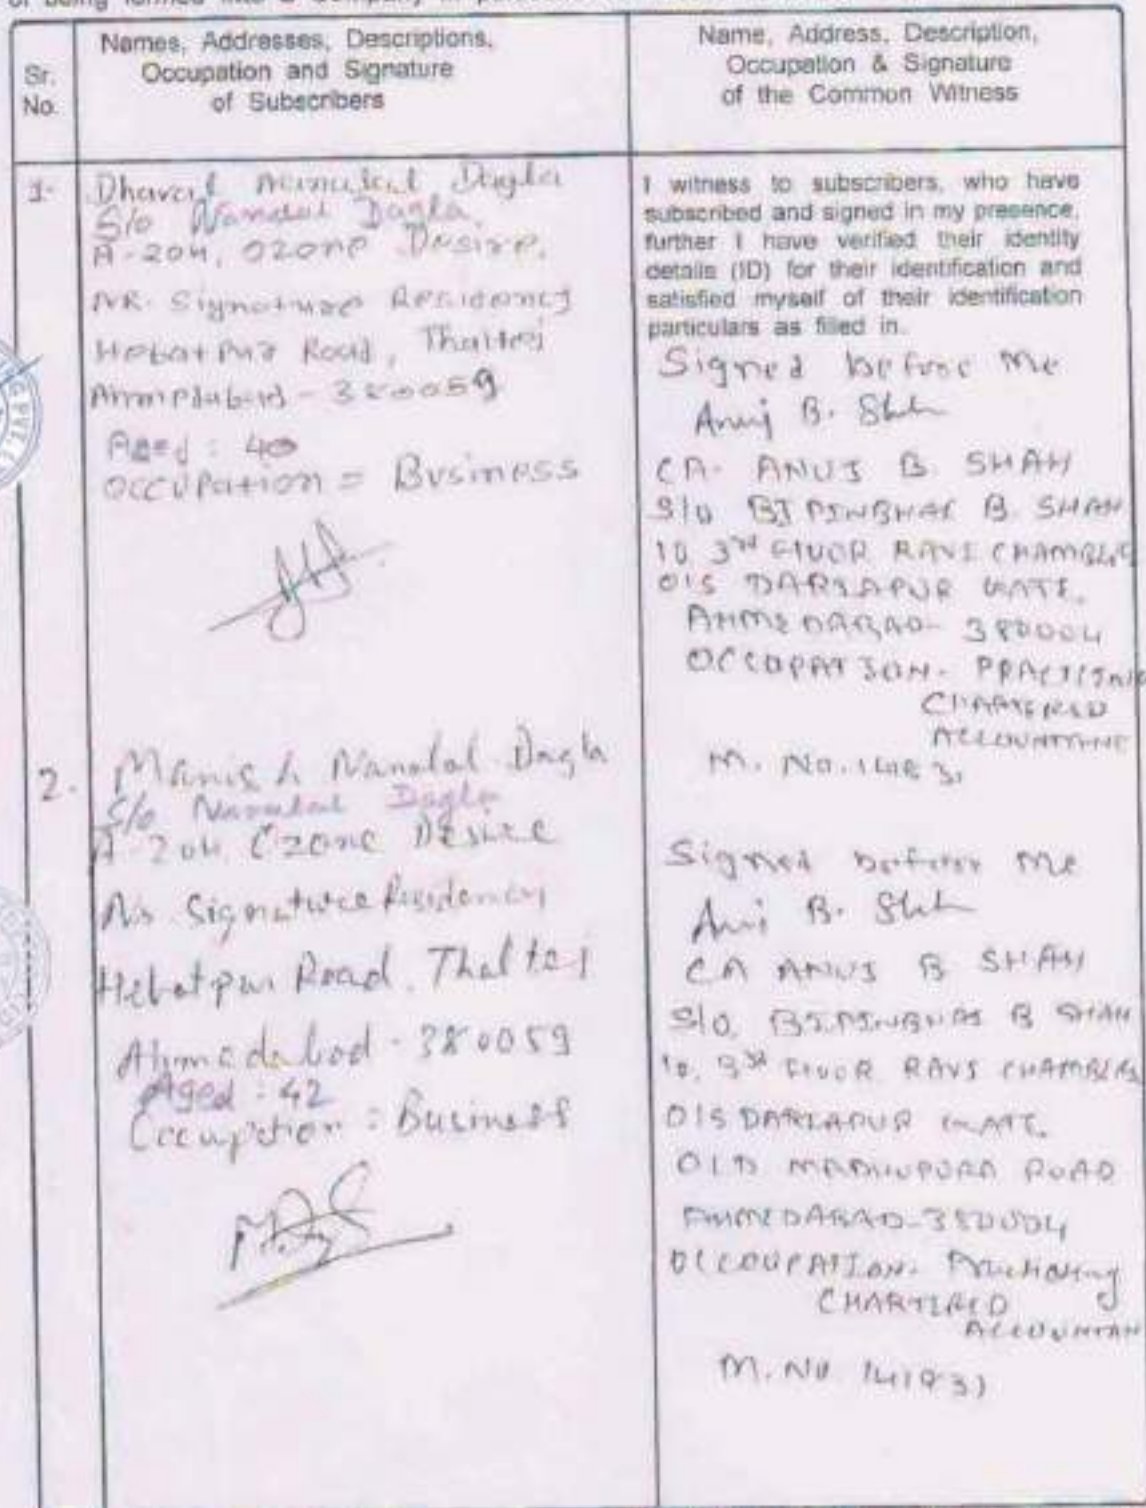 of being formed into a Company in
Sr.
No.
Names, Addresses, Descriptions,
Occupation and Signature
of Subscribers
Name, Address, Description,
Occupation & Signature
of the Common Witness
1-
Dhaval Dagla
S/o Nanalal Dagla.
A-204, OZONE Desire,
NR. Signature Residency
Hebatpur Road, Thaltej
Ahmedabad - 380059
Aged : 40
OCCUPation = Business
I witness to subscribers, who have
subscribed and signed in my presence,
further I have verified their identity
details (ID) for their identification and
satisfied myself of their identification
particulars as filled in.
Signed before Me
Anuj B. Shah
CA. ANUJ B. SHAH
S/o BIPINBHAI B. SHAH
10 3rd FLOOR RAVI CHAMBER
O/S DARIAPUR GATE.
AHMEDABAD- 380004
OCCUPATION-
CHARTERED
ACCOUNTANT
M. No.
2.
Manish Nanalal Dagla
S/o Nanalal Dagla
A-204, Ozone Desire
Nr Signature Residency
Hebatpur Road, Thaltej
Ahmedabad - 380059
Aged : 42
Occupation : Business
Signed before me
Anuj B. Shah
CA ANUJ B SHAH
S/O, BIPINBHAI B SHAH
10, 3rd FLOOR RAVI CHAMBERS
O/S DARIAPUR GATE.
OLD MADHUPURA ROAD
AHMEDABAD-380004
OCCOUPATION. Practicing
CHARTERED
ACCOUNTAN
M. NO 141931